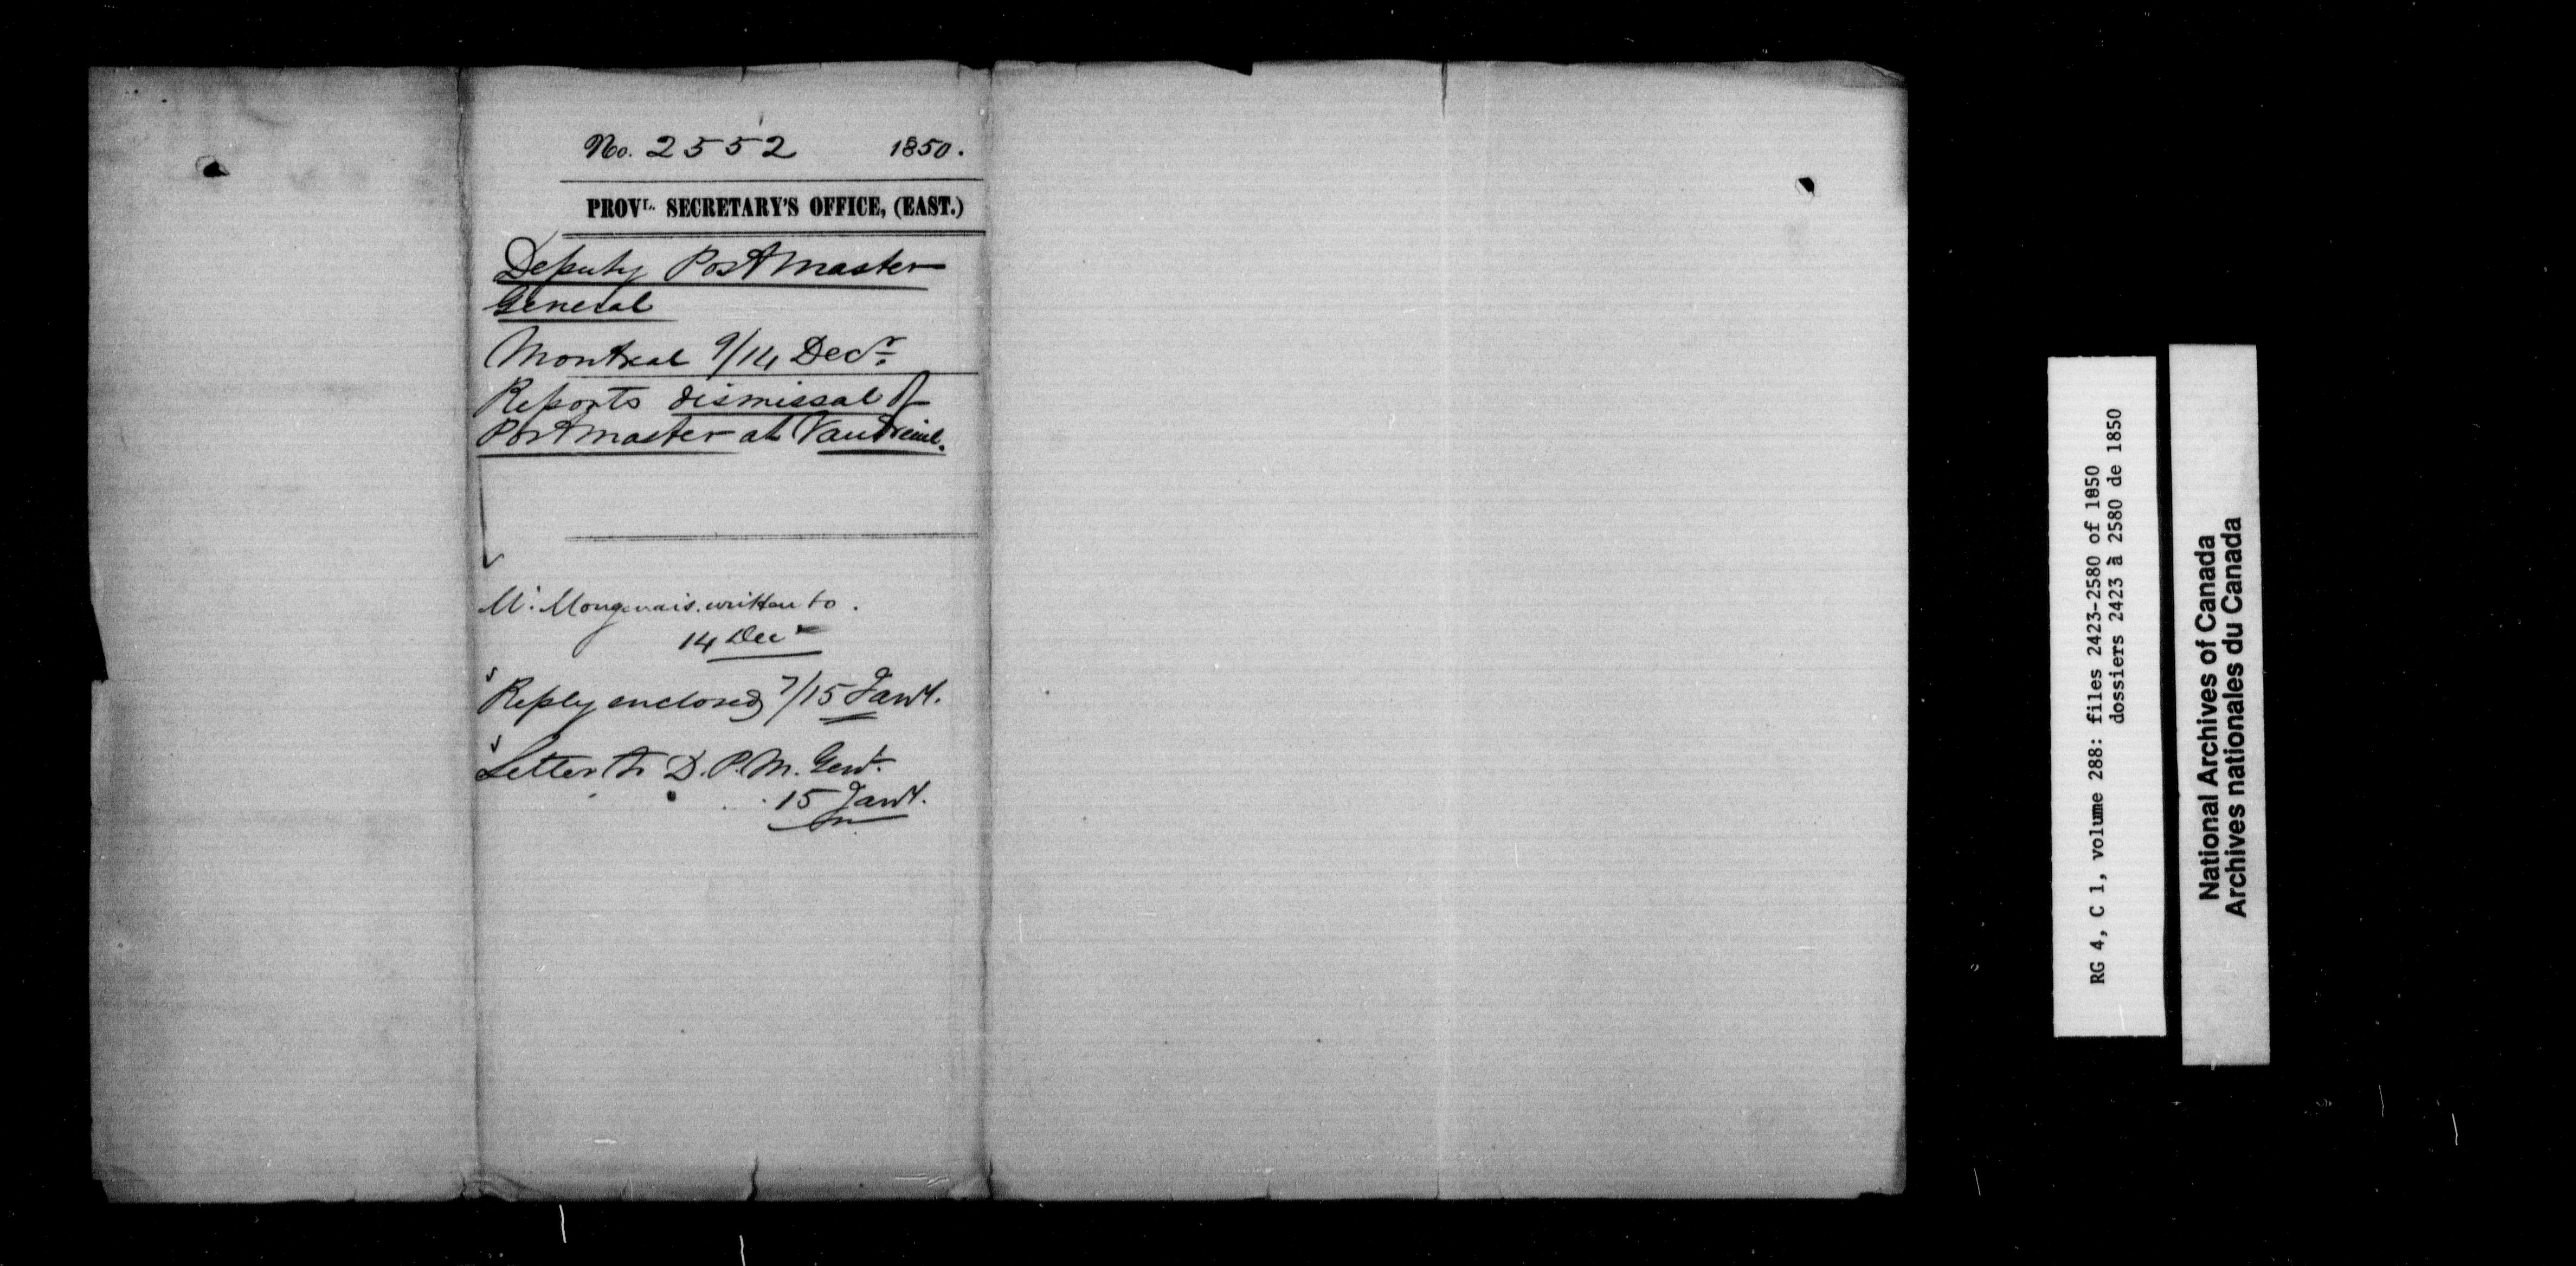 No. 2552 1850.
PROVL. SECRETARY'S OFFICE, (EAST.)
Deputy Postmaster
General
Montreal 9/14 Decr.
Reports dismissal of
Postmaster at Vaudreuil.
Mr. Mongenais. written to.
14 Decr
Reply enclosed 7/15 Jany.
Letter to D. P. M. Genl.
15 Jany.
RG 4, C 1, volume 288: files 2423-2580 of 1850
dossiers 2423 à 2580 de 1850
National Archives of Canada
Archives nationales du Canada